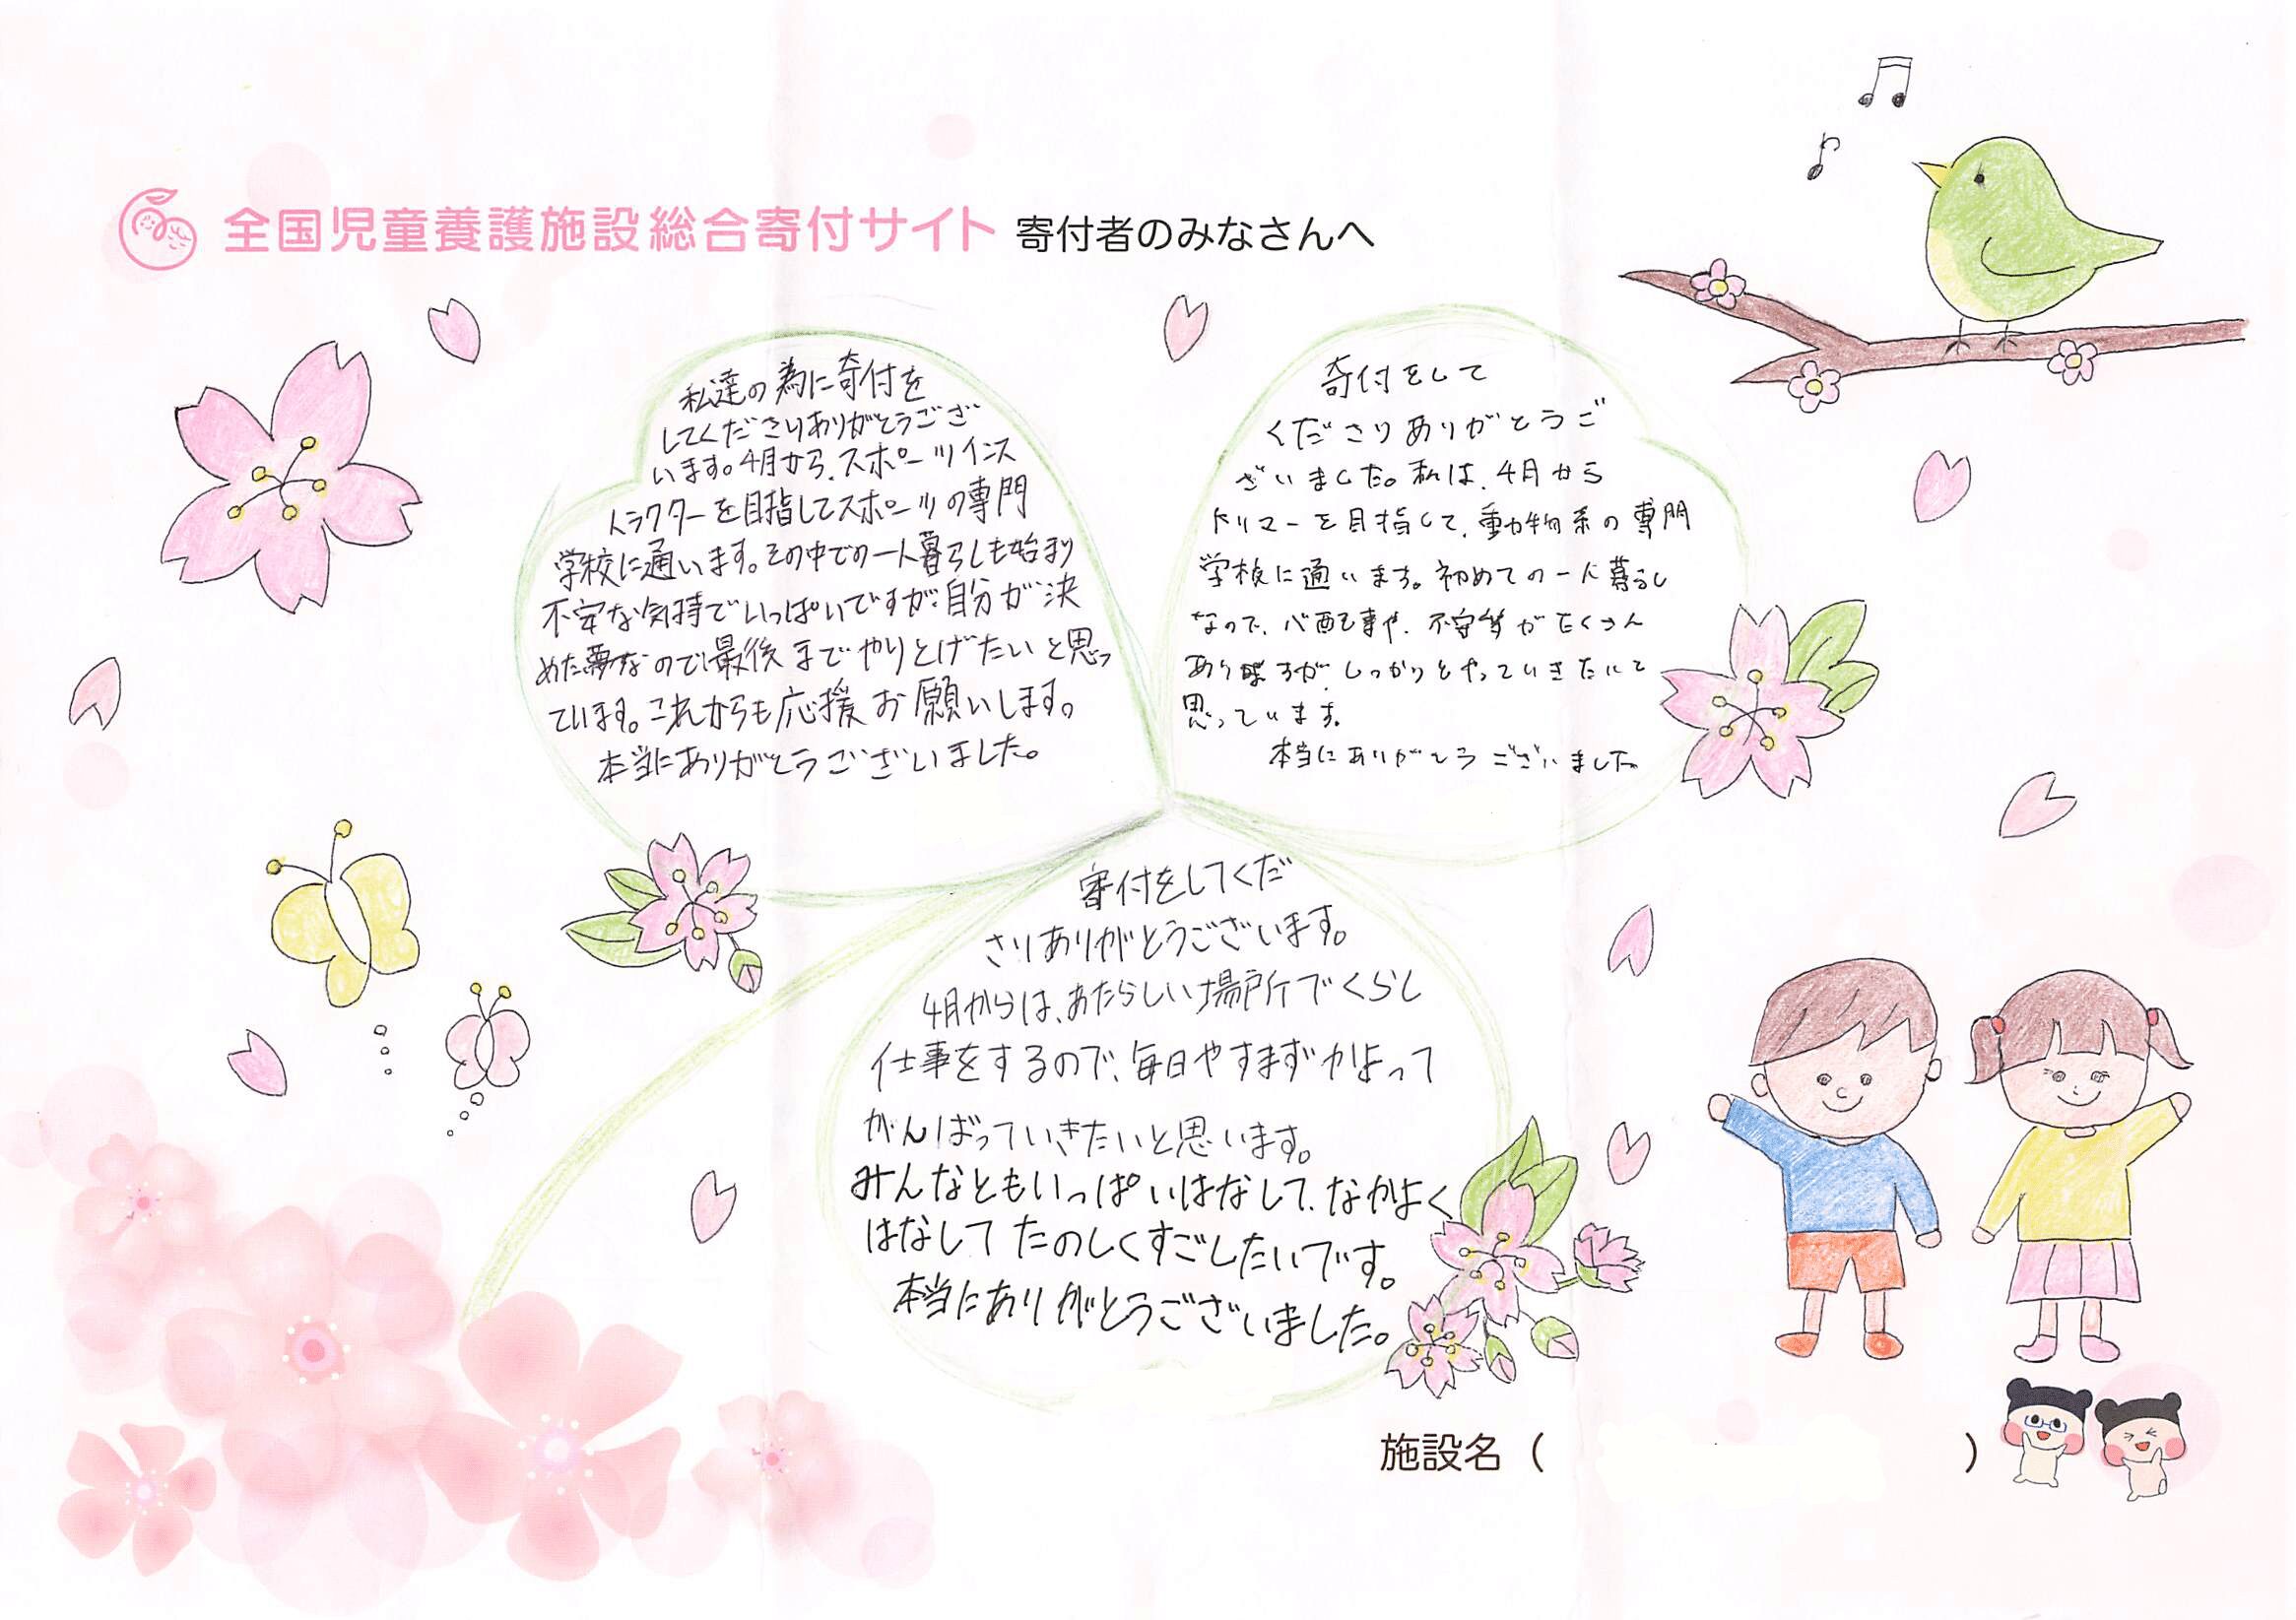 全国児童養護施設総合寄付サイト 寄付者のみなさんへ
私達の為に寄付を
してくださりありがとうござ
います。4月から、スポーツインス
トラクターを目指してスポーツの専門
学校に通います。その中での一人暮らしも始まり
不安な気持でいっぱいですが自分が決
めた夢なので最後までやりとげたいと思っ
ています。これからも応援お願いします。
本当にありがとうございました。
寄付をして
くださりありがとうご
ざいました。私は、4月から
トリマーを目指して、動物系の専門
学校に通います。初めての一人暮らし
なので、心配事や、不安等がたくさん
ありますが、しっかりとやっていきたいと
思っています。
本当にありがとうございました。
寄付をしてくだ
さりありがとうございます。
4月からは、あたらしい場所でくらし
仕事をするので、毎日やすまずかよって
がんばっていきたいと思います。
みんなともいっぱいはなして、なかよく
はなしてたのしくすごしたいです。
本当にありがとうございました。
施設名 ( )